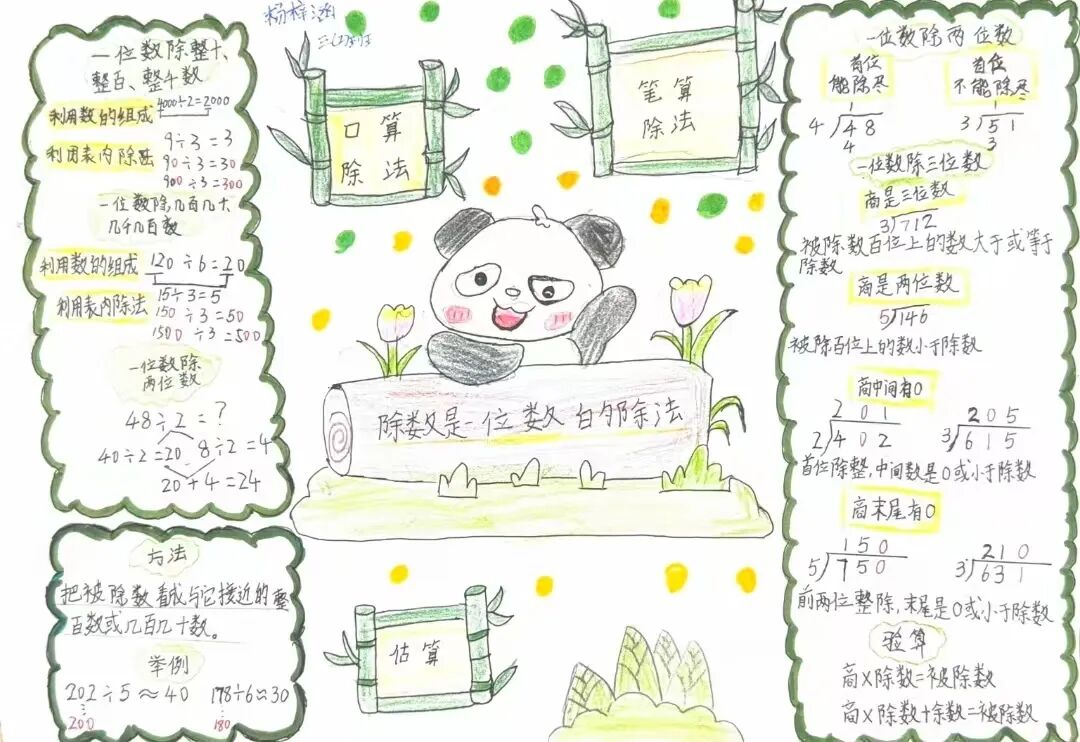 杨梓涵
三(2)班
一位数除整十、
整百、整千数
利用数的组成 4000÷2=2000
利用表内除法 9÷3=3
90÷3=30
900÷3=300
一位数除几百几十、
几千几百数
利用数的组成 120÷6=20
利用表内除法 15÷3=5
150÷3=50
1500÷3=500
一位数除
两位数
48÷2=?
40÷2=20 8÷2=4
20+4=24
方法
把被除数看成与它接近的整
百数或几百几十数。
举例
202÷5≈40 178÷6≈30
200 180
口算
除法
笔算
除法
除数是一位数的除法
估算
一位数除两位数
首位
能除尽
首位
不能除尽
1 1
4)48 3)51
4 3
一位数除三位数
商是三位数
3)712
被除数百位上的数大于或等于
除数
商是两位数
5)146
被除百位上的数小于除数
商中间有0
201 205
2)402 3)615
首位除整,中间数是0或小于除数
商末尾有0
150 210
5)750 3)631
前两位整除,末尾是0或小于除数
验算
商×除数=被除数
商×除数+余数=被除数